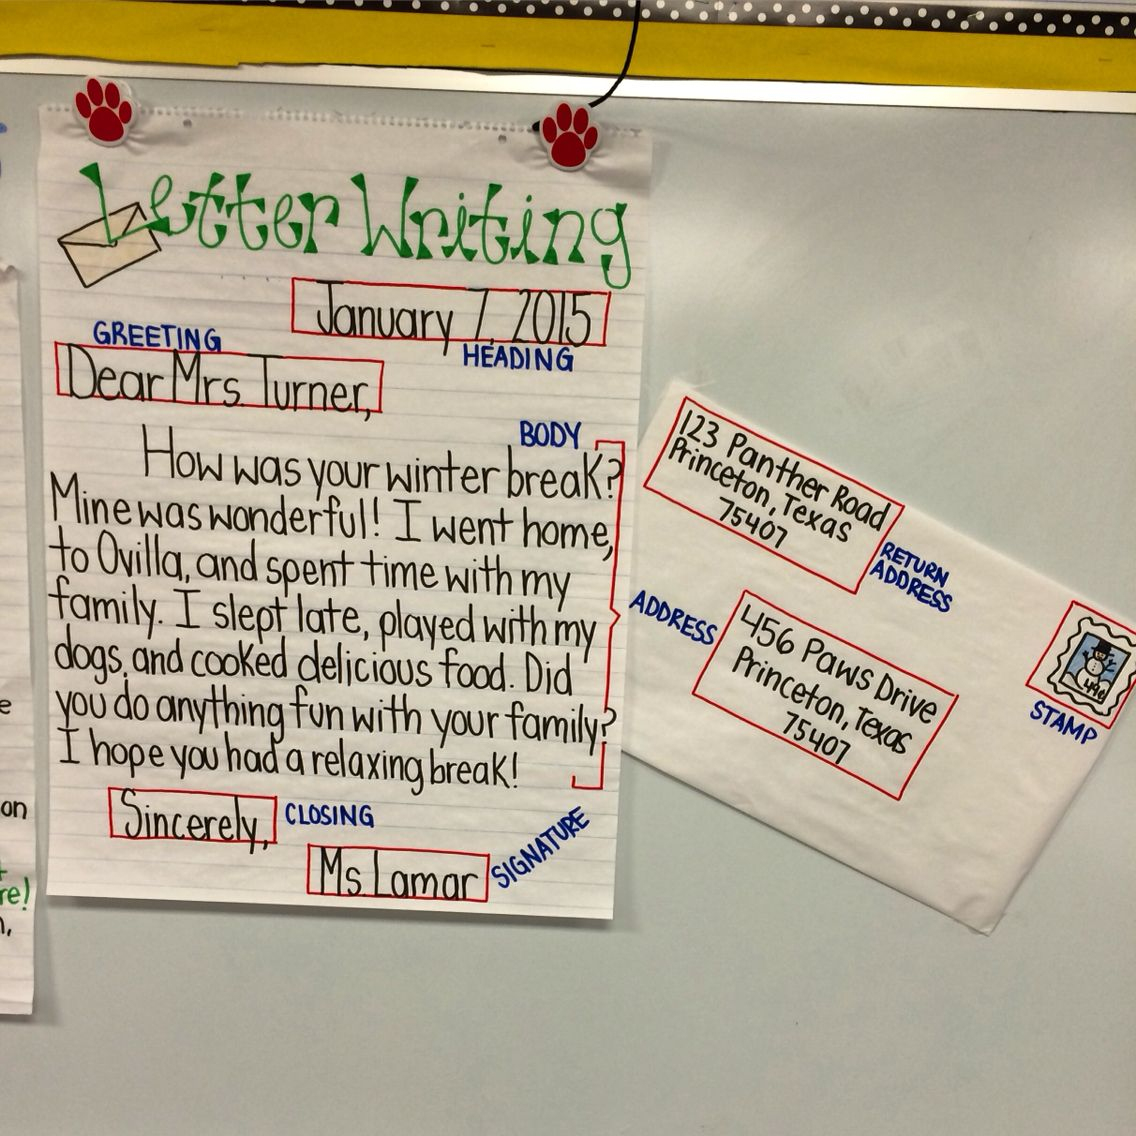 Letter Writing
January 7, 2015
GREETING
HEADING
Dear Mrs. Turner,
BODY
How was your winter break?
Mine was wonderful! I went home,
to Ovilla, and spent time with my
family. I slept late, played with my
dogs, and cooked delicious food. Did
you do anything fun with your family?
I hope you had a relaxing break!
Sincerely,
CLOSING
Ms. Lamar
SIGNATURE
123 Panther Road
Princeton, Texas
75407
RETURN
ADDRESS
ADDRESS
456 Paws Drive
Princeton, Texas
75407
49¢
STAMP
on
re!